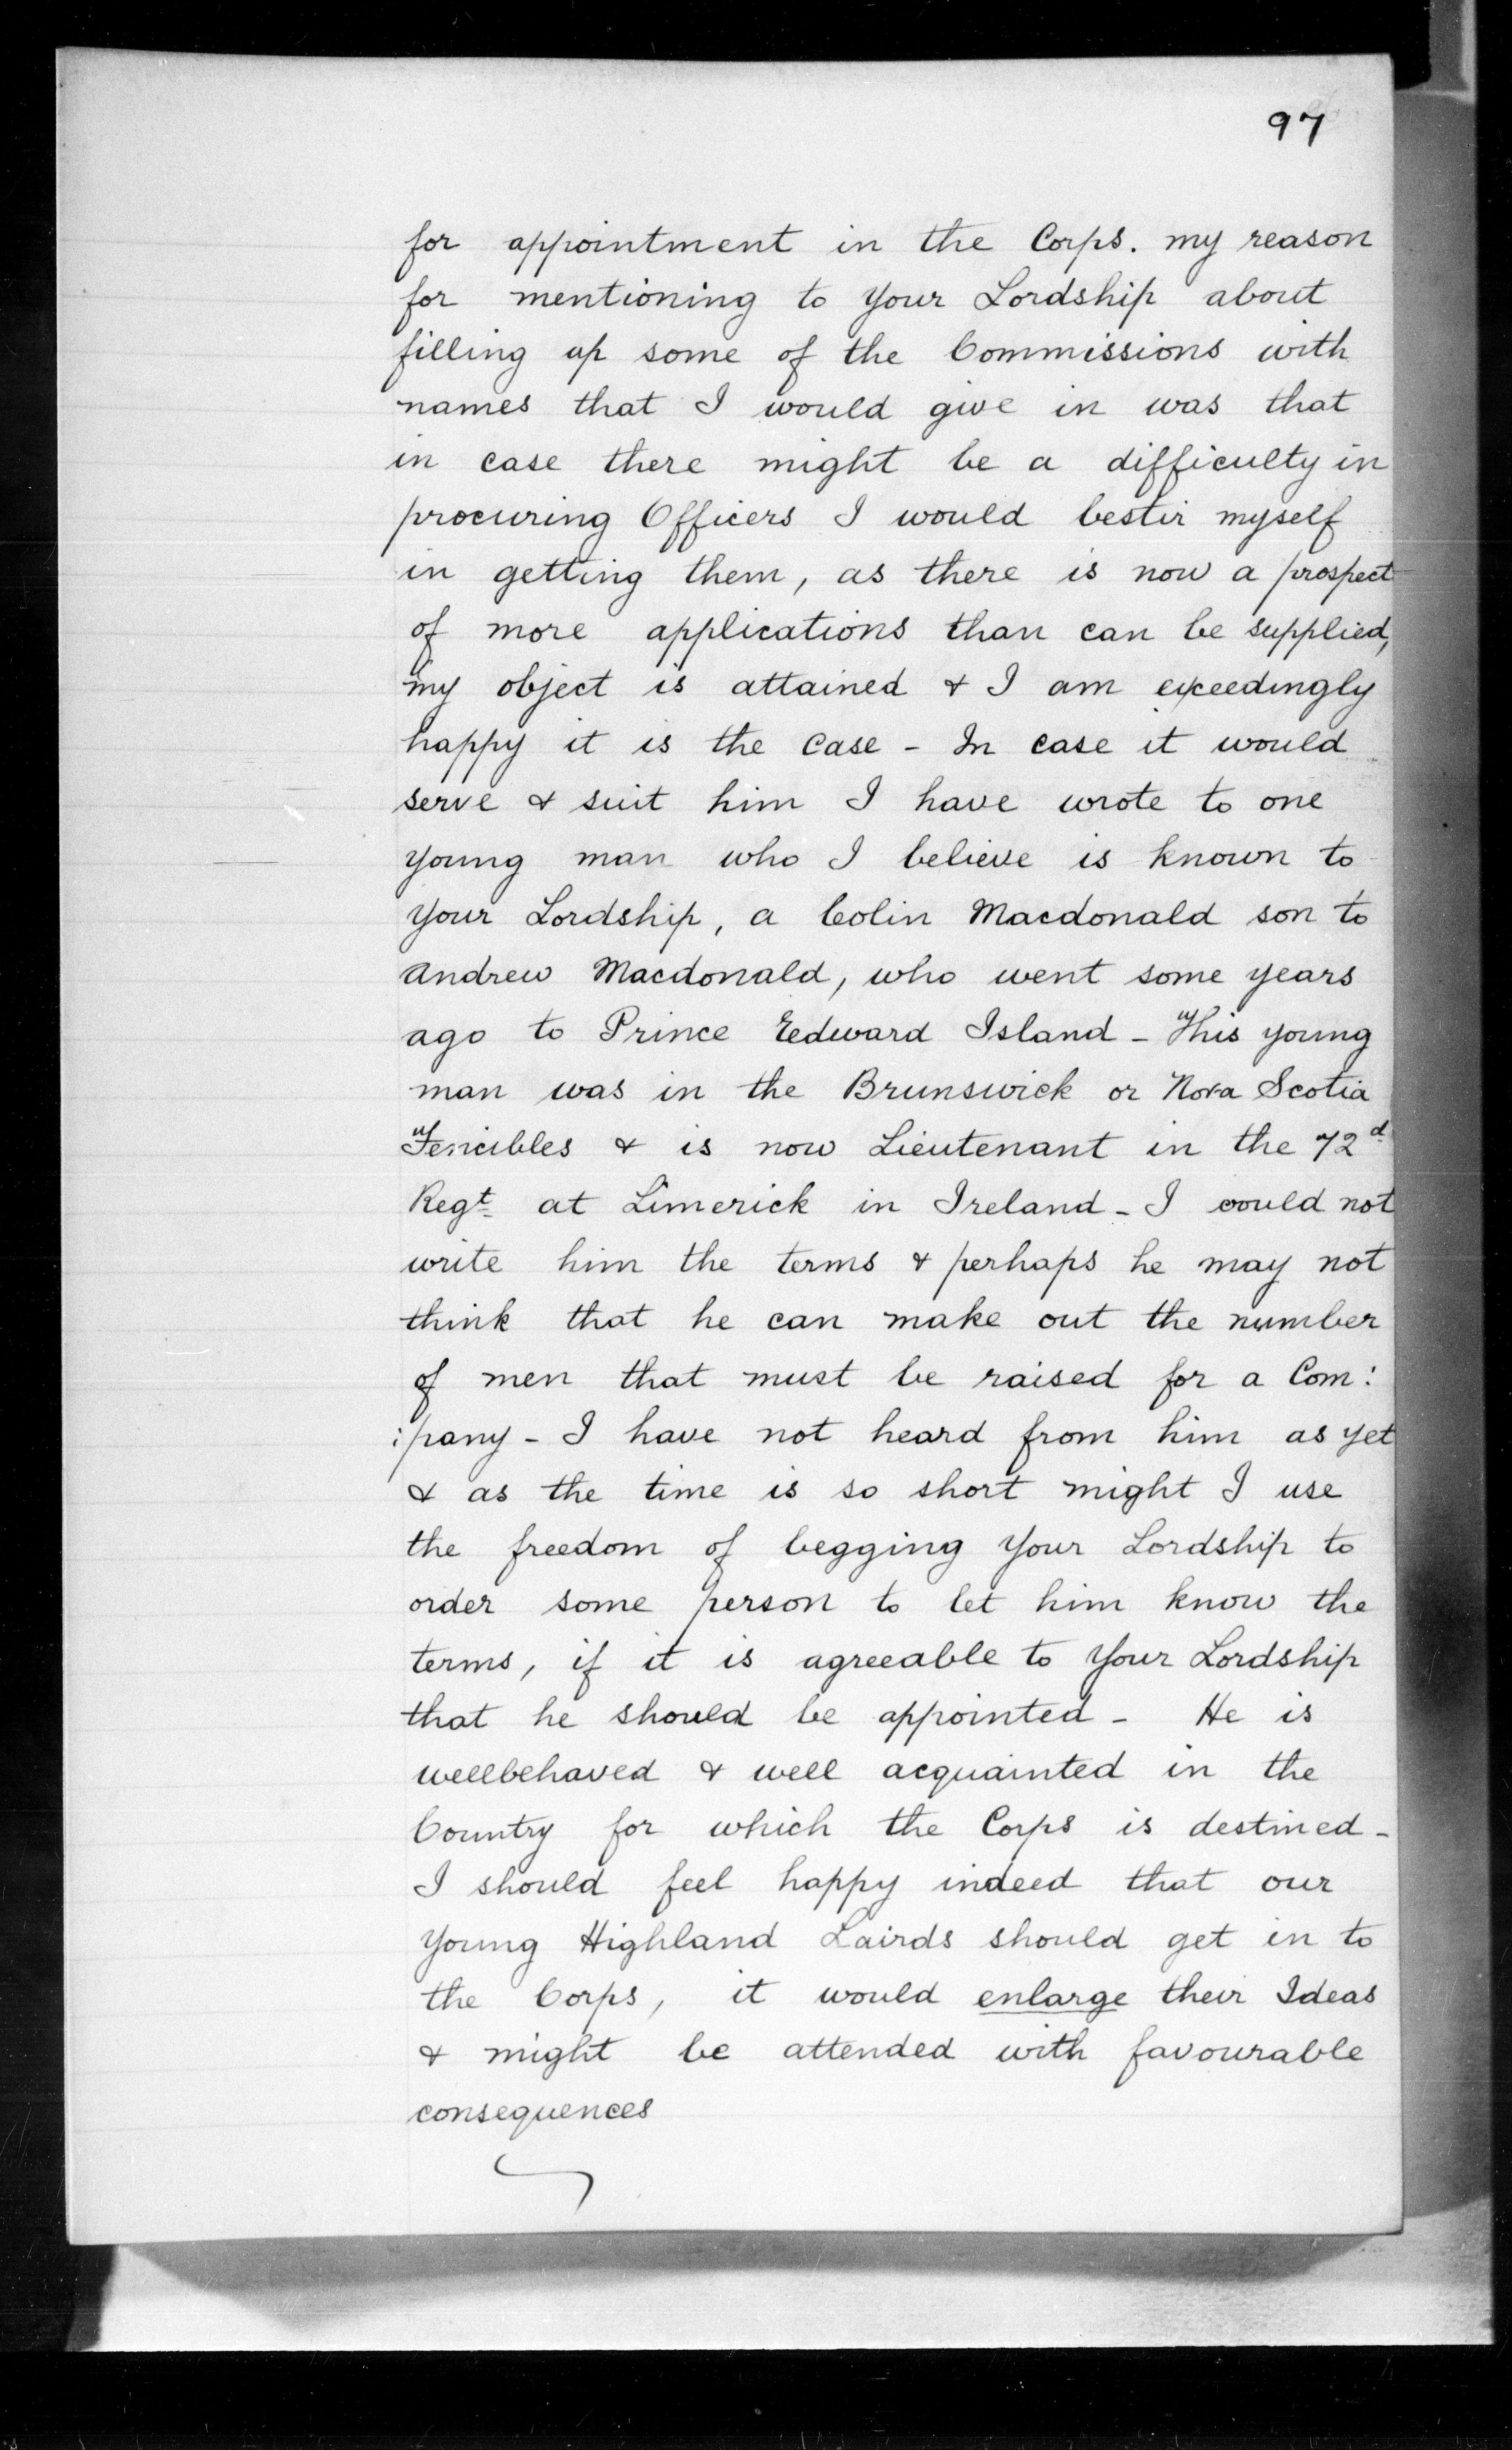 97
for appointment in the Corps. my reason
for mentioning to your Lordship about
filling up some of the Commissions with
names that I would give in was that
in case there might be a difficulty in
procuring Officers I would bestir myself
in getting them, as there is now a prospect
of more applications than can be supplied,
my object is attained & I am exceedingly
happy it is the case - In case it would
serve & suit him I have wrote to one
young man who I believe is known to
your Lordship, a Colin Macdonald son to
Andrew Macdonald, who went some years
ago to Prince Edward Island - This young
man was in the Brunswick or Nova Scotia
Fencibles & is now Lieutenant in the 72d
Regt at Limerick in Ireland - I could not
write him the terms & perhaps he may not
think that he can make out the number
of men that must be raised for a Com:
:pany - I have not heard from him as yet
& as the time is so short might I use
the freedom of begging your Lordship to
order some person to let him know the
terms, if it is agreeable to your Lordship
that he should be appointed - He is
wellbehaved & well acquainted in the
Country for which the Corps is destined -
I should feel happy indeed that our
young Highland Lairds should get in to
the Corps, it would enlarge their Ideas
& might be attended with favourable
consequences